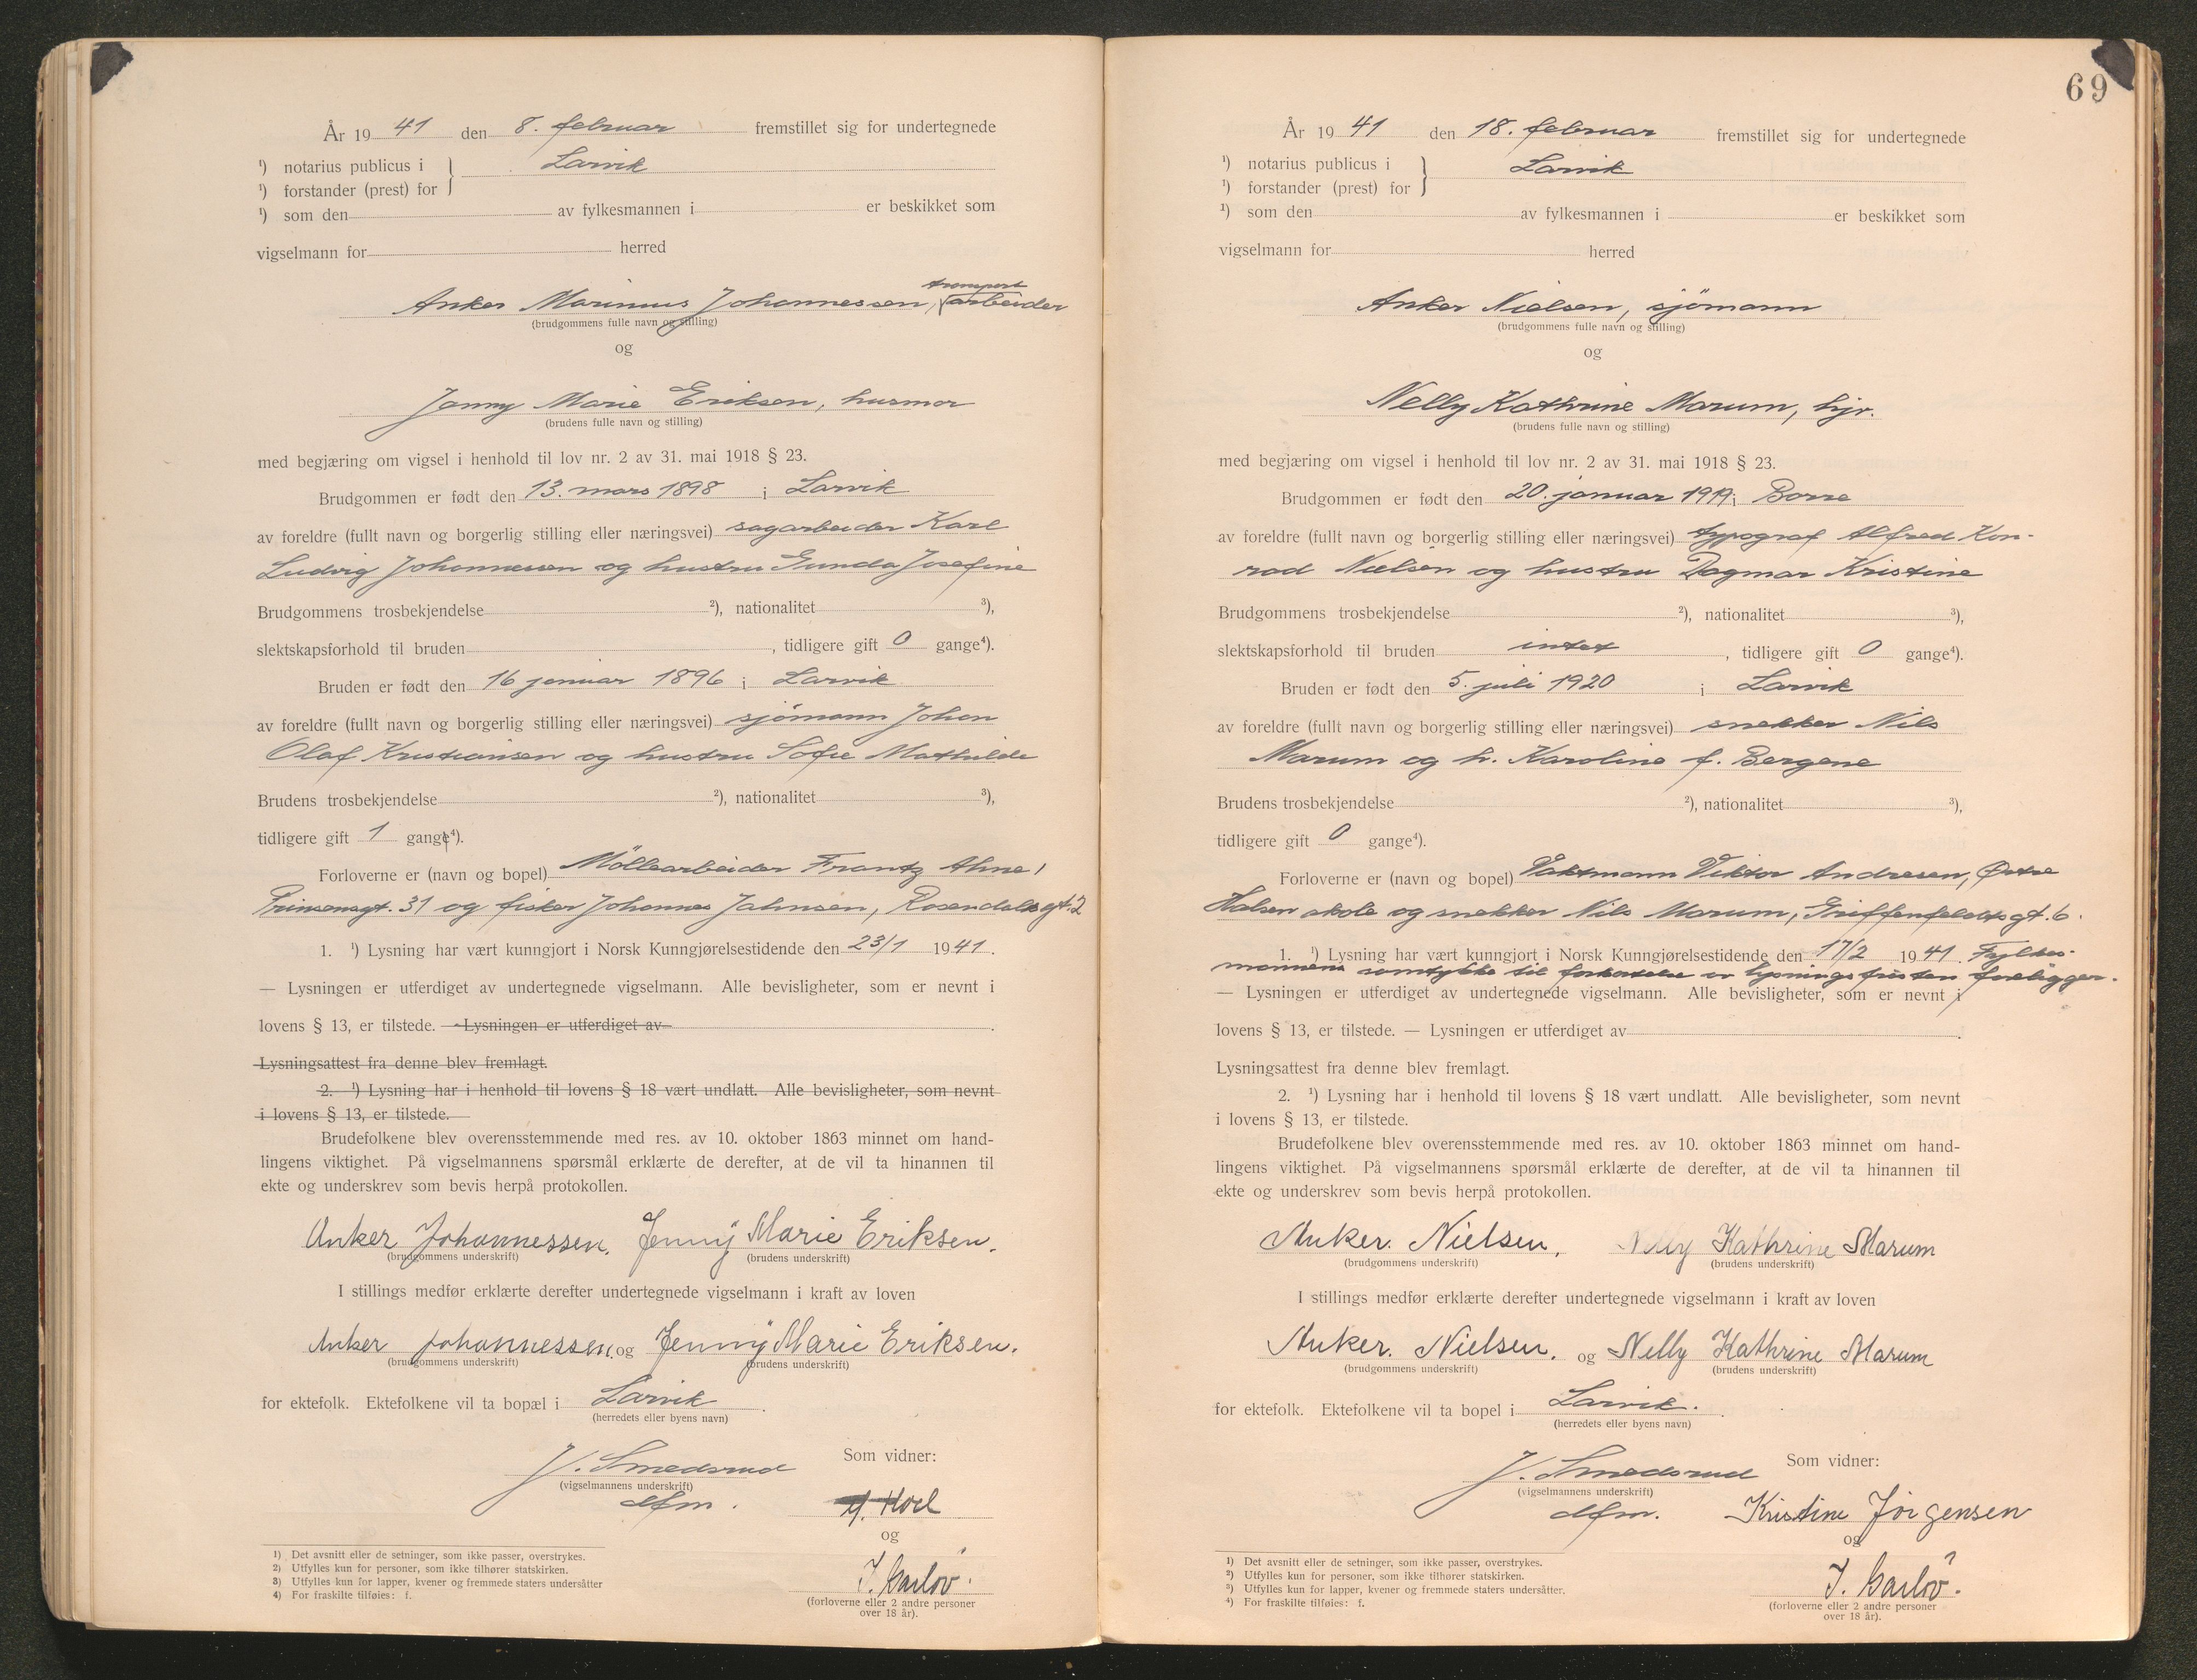 År 19 41 den 8. februar fremstillet sig for undertegnede
¹) notarius publicus i } Larvik
¹) forstander (prest) for
¹) som den av fylkesmannen i er beskikket som
vigselmann for herred
transport
Anker Marinius Johannessen, arbeider
(brudgommens fulle navn og stilling)
og
Jenny Marie Eriksen, husmor
(brudens fulle navn og stilling)
med begjæring om vigsel i henhold til lov nr. 2 av 31. mai 1918 § 23.
Brudgommen er født den 13. mars 1898 i Larvik
av foreldre (fullt navn og borgerlig stilling eller næringsvei) sagarbeider Karl
Ludvig Johannessen og hustru Gunda Josefine
Brudgommens trosbekjendelse ²), nationalitet ³),
slektskapsforhold til bruden , tidligere gift 0 gange⁴).
Bruden er født den 16 januar 1896 i Larvik
av foreldre (fullt navn og borgerlig stilling eller næringsvei) sjömann Johan
Olaf Kristiansen og hustru Sofie Mathilde
Brudens trosbekjendelse ²), nationalitet ³),
tidligere gift 1 gange⁴).
Forloverne er (navn og bopel) Möllearbeider Frantz Ahne,
Prinsensgt. 31 og fisker Johannes Jahnsen, Rosendalsgt. 2
1. ¹) Lysning har vært kunngjort i Norsk Kunngjørelsestidende den 23/1 1941.
— Lysningen er utferdiget av undertegnede vigselmann. Alle bevisligheter, som er nevnt i
lovens § 13, er tilstede. — Lysningen er utferdiget av .
Lysningsattest fra denne blev fremlagt.
2. ¹) Lysning har i henhold til lovens § 18 vært undlatt. Alle bevisligheter, som nevnt
i lovens § 13, er tilstede.
Brudefolkene blev overensstemmende med res. av 10. oktober 1863 minnet om hand-
lingens viktighet. På vigselmannens spørsmål erklærte de derefter, at de vil ta hinannen til
ekte og underskrev som bevis herpå protokollen.
Anker Johannessen. Jenny Marie Eriksen.
(brudgommens underskrift) (brudens underskrift)
I stillings medfør erklærte derefter undertegnede vigselmann i kraft av loven
Anker Johannessen. og Jenny Marie Eriksen.
(brudgommens underskrift) (brudens underskrift)
for ektefolk. Ektefolkene vil ta bopæl i Larvik .
(herredets eller byens navn)
J. Smedsrud Som vidner:
(vigselmannens underskrift)
dfm. Hoel
og
J. Garlöv.
(forloverne eller 2 andre personer
over 18 år).
1) Det avsnitt eller de setninger, som ikke passer, overstrykes.
2) Utfylles kun for personer, som ikke tilhører statskirken.
3) Utfylles kun for lapper, kvener og fremmede staters undersåtter
4) For fraskilte tilføies: f.
69
År 19 41 den 18. februar fremstillet sig for undertegnede
¹) notarius publicus i } Larvik
¹) forstander (prest) for
¹) som den av fylkesmannen i er beskikket som
vigselmann for herred
Anker Nielsen, sjömann
(brudgommens fulle navn og stilling)
og
Nelly Kathrine Marum, hjv.
(brudens fulle navn og stilling)
med begjæring om vigsel i henhold til lov nr. 2 av 31. mai 1918 § 23.
Brudgommen er født den 20. januar 1919 i Borre
av foreldre (fullt navn og borgerlig stilling eller næringsvei) typograf Alfred Kon-
rad Nielsen og hustru Dagmar Kristine
Brudgommens trosbekjendelse ²), nationalitet ³),
slektskapsforhold til bruden intet , tidligere gift 0 gange⁴).
Bruden er født den 5. juli 1920 i Larvik
av foreldre (fullt navn og borgerlig stilling eller næringsvei) snekker Nils
Marum og h. Karoline f. Bergene
Brudens trosbekjendelse ²), nationalitet ³),
tidligere gift 0 gange⁴).
Forloverne er (navn og bopel) Vaktmann Viktor Andresen, Østre
Halsen skole og snekker Nils Marum, Griffenfeldtsgt. 6.
1. ¹) Lysning har vært kunngjort i Norsk Kunngjørelsestidende den 17/2 1941. Fylkes-
mannens samtykke til forkortelse av lysningsfristen foreligger.
— Lysningen er utferdiget av undertegnede vigselmann. Alle bevisligheter, som er nevnt i
lovens § 13, er tilstede. — Lysningen er utferdiget av .
Lysningsattest fra denne blev fremlagt.
2. ¹) Lysning har i henhold til lovens § 18 vært undlatt. Alle bevisligheter, som nevnt
i lovens § 13, er tilstede.
Brudefolkene blev overensstemmende med res. av 10. oktober 1863 minnet om hand-
lingens viktighet. På vigselmannens spørsmål erklærte de derefter, at de vil ta hinannen til
ekte og underskrev som bevis herpå protokollen.
Anker. Nielsen. Nelly Kathrine Marum
(brudgommens underskrift) (brudens underskrift)
I stillings medfør erklærte derefter undertegnede vigselmann i kraft av loven
Anker. Nielsen. og Nelly Kathrine Marum
(brudgommens underskrift) (brudens underskrift)
for ektefolk. Ektefolkene vil ta bopel i Larvik. .
(herredets eller byens navn)
J. Smedsrud Som vidner:
(vigselmannens underskrift)
dfm. Kristine Jørgensen
og
J. Garlöv.
(forloverne eller 2 andre personer
over 18 år).
¹) Det avsnitt eller de setninger, som ikke passer, overstrykes.
²) Utfylles kun for personer, som ikke tilhører statskirken.
³) Utfylles kun for lapper, kvener og fremmede staters undersåtter.
⁴) For fraskilte tilføies: f.